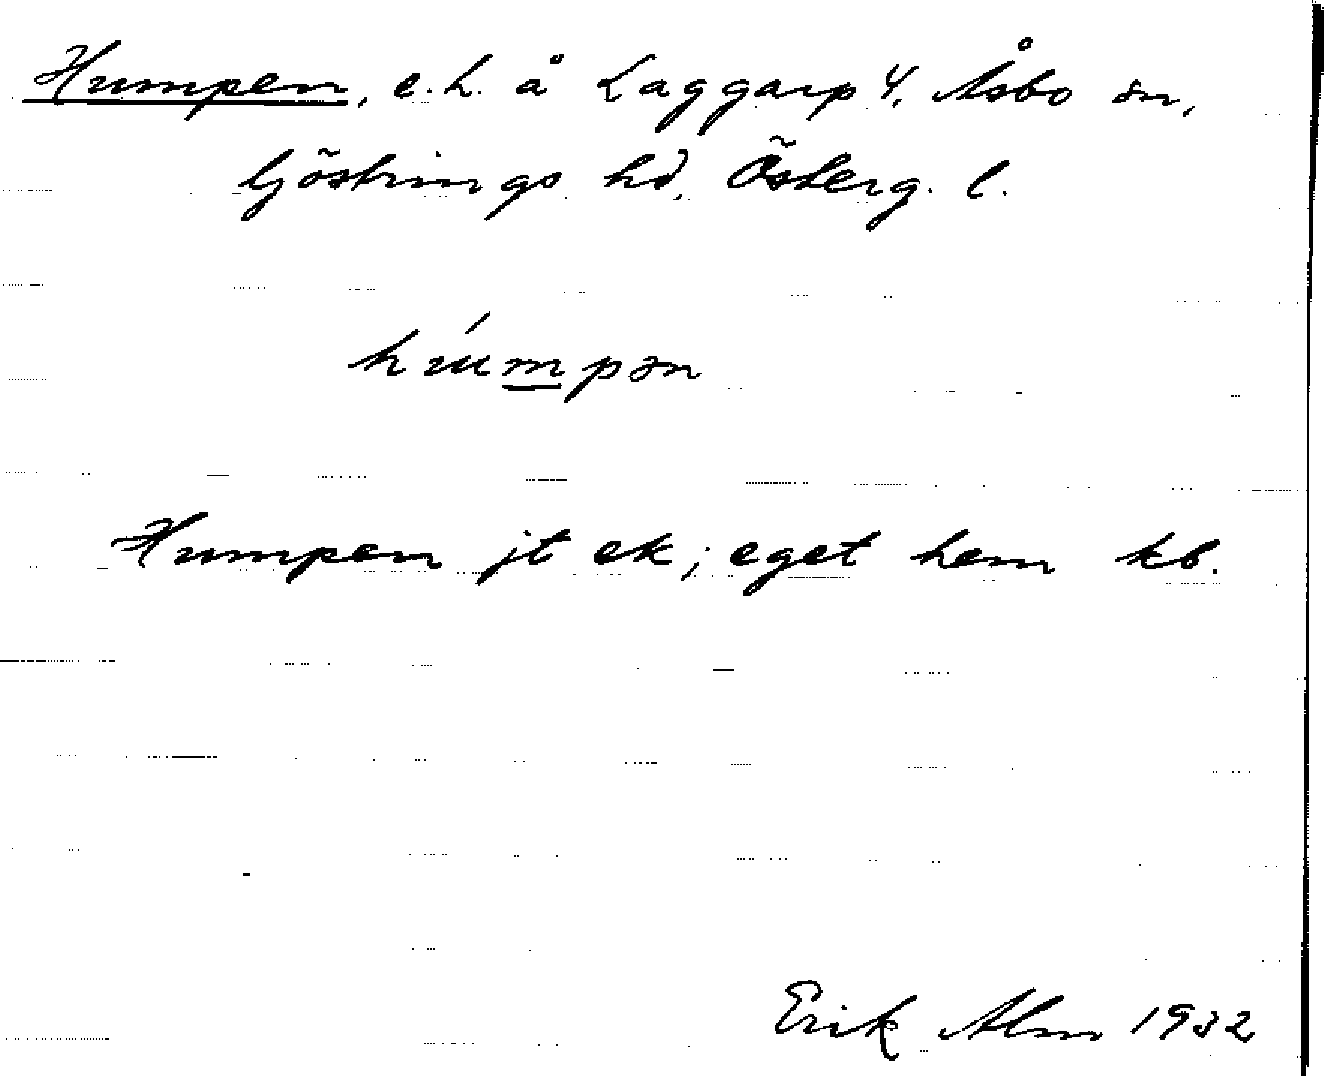 Humpen, e.h. å Laggarp 4, Åsbo sn,
Göstrings hd, Österg. l.
húmpən
Humpen jt ek; eget hem kb.
Erik Alm 1932